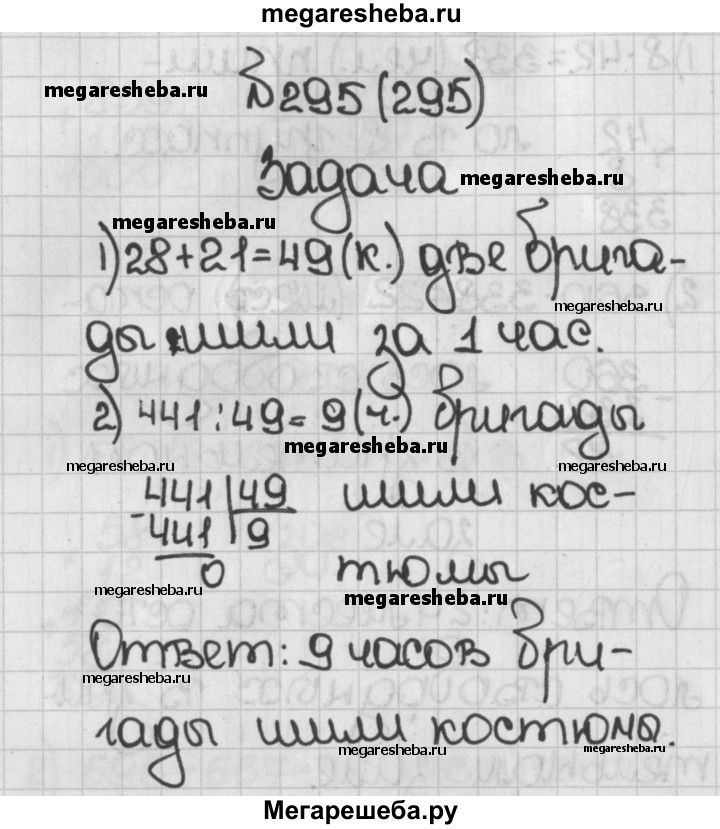 megaresheba.ru
megaresheba.ru
№295(295)
Задача
megaresheba.ru
megaresheba.ru
1) 28+21=49(к.) две брига-
megaresheba.ru
ды шили за 1 час.
2) 441:49=9(ч.) бригады
megaresheba.ru
megaresheba.ru
megaresheba.ru
- 441 | 49 шили кос-
441 | 9
0 тюмы
megaresheba.ru
megaresheba.ru
Ответ: 9 часов бри-
megaresheba.ru
megaresheba.ru
гады шили костюмы.
megaresheba.ru
megaresheba.ru
Мегарешеба.ру